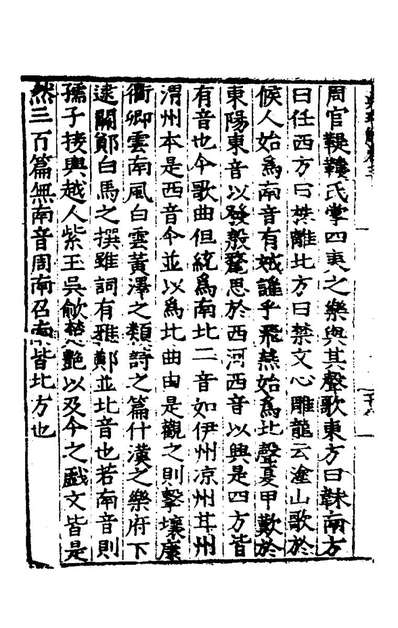 周官鞮鞻氏掌四夷之樂與其聲歌東方曰韎南方
曰任西方曰株離北方曰禁文心雕龍云塗山歌於
候人始爲南音有娀謠乎飛燕始爲北聲夏甲歎於
東陽東音以發殷整思於西河西音以興是四方皆
有音也今歌曲但統爲南北二音如伊州凉州甘州
渭州本是西音今並以爲北曲由是觀之則擊壤康
衢卿雲南風白雲黃澤之類詩之篇什漢之樂府下
逮關鄭白馬之撰雖詞有雅鄭並北音也若南音則
孺子接輿越人紫玉吳歈楚艷以及今之戲文皆是
然三百篇無南音周南召南皆北方也